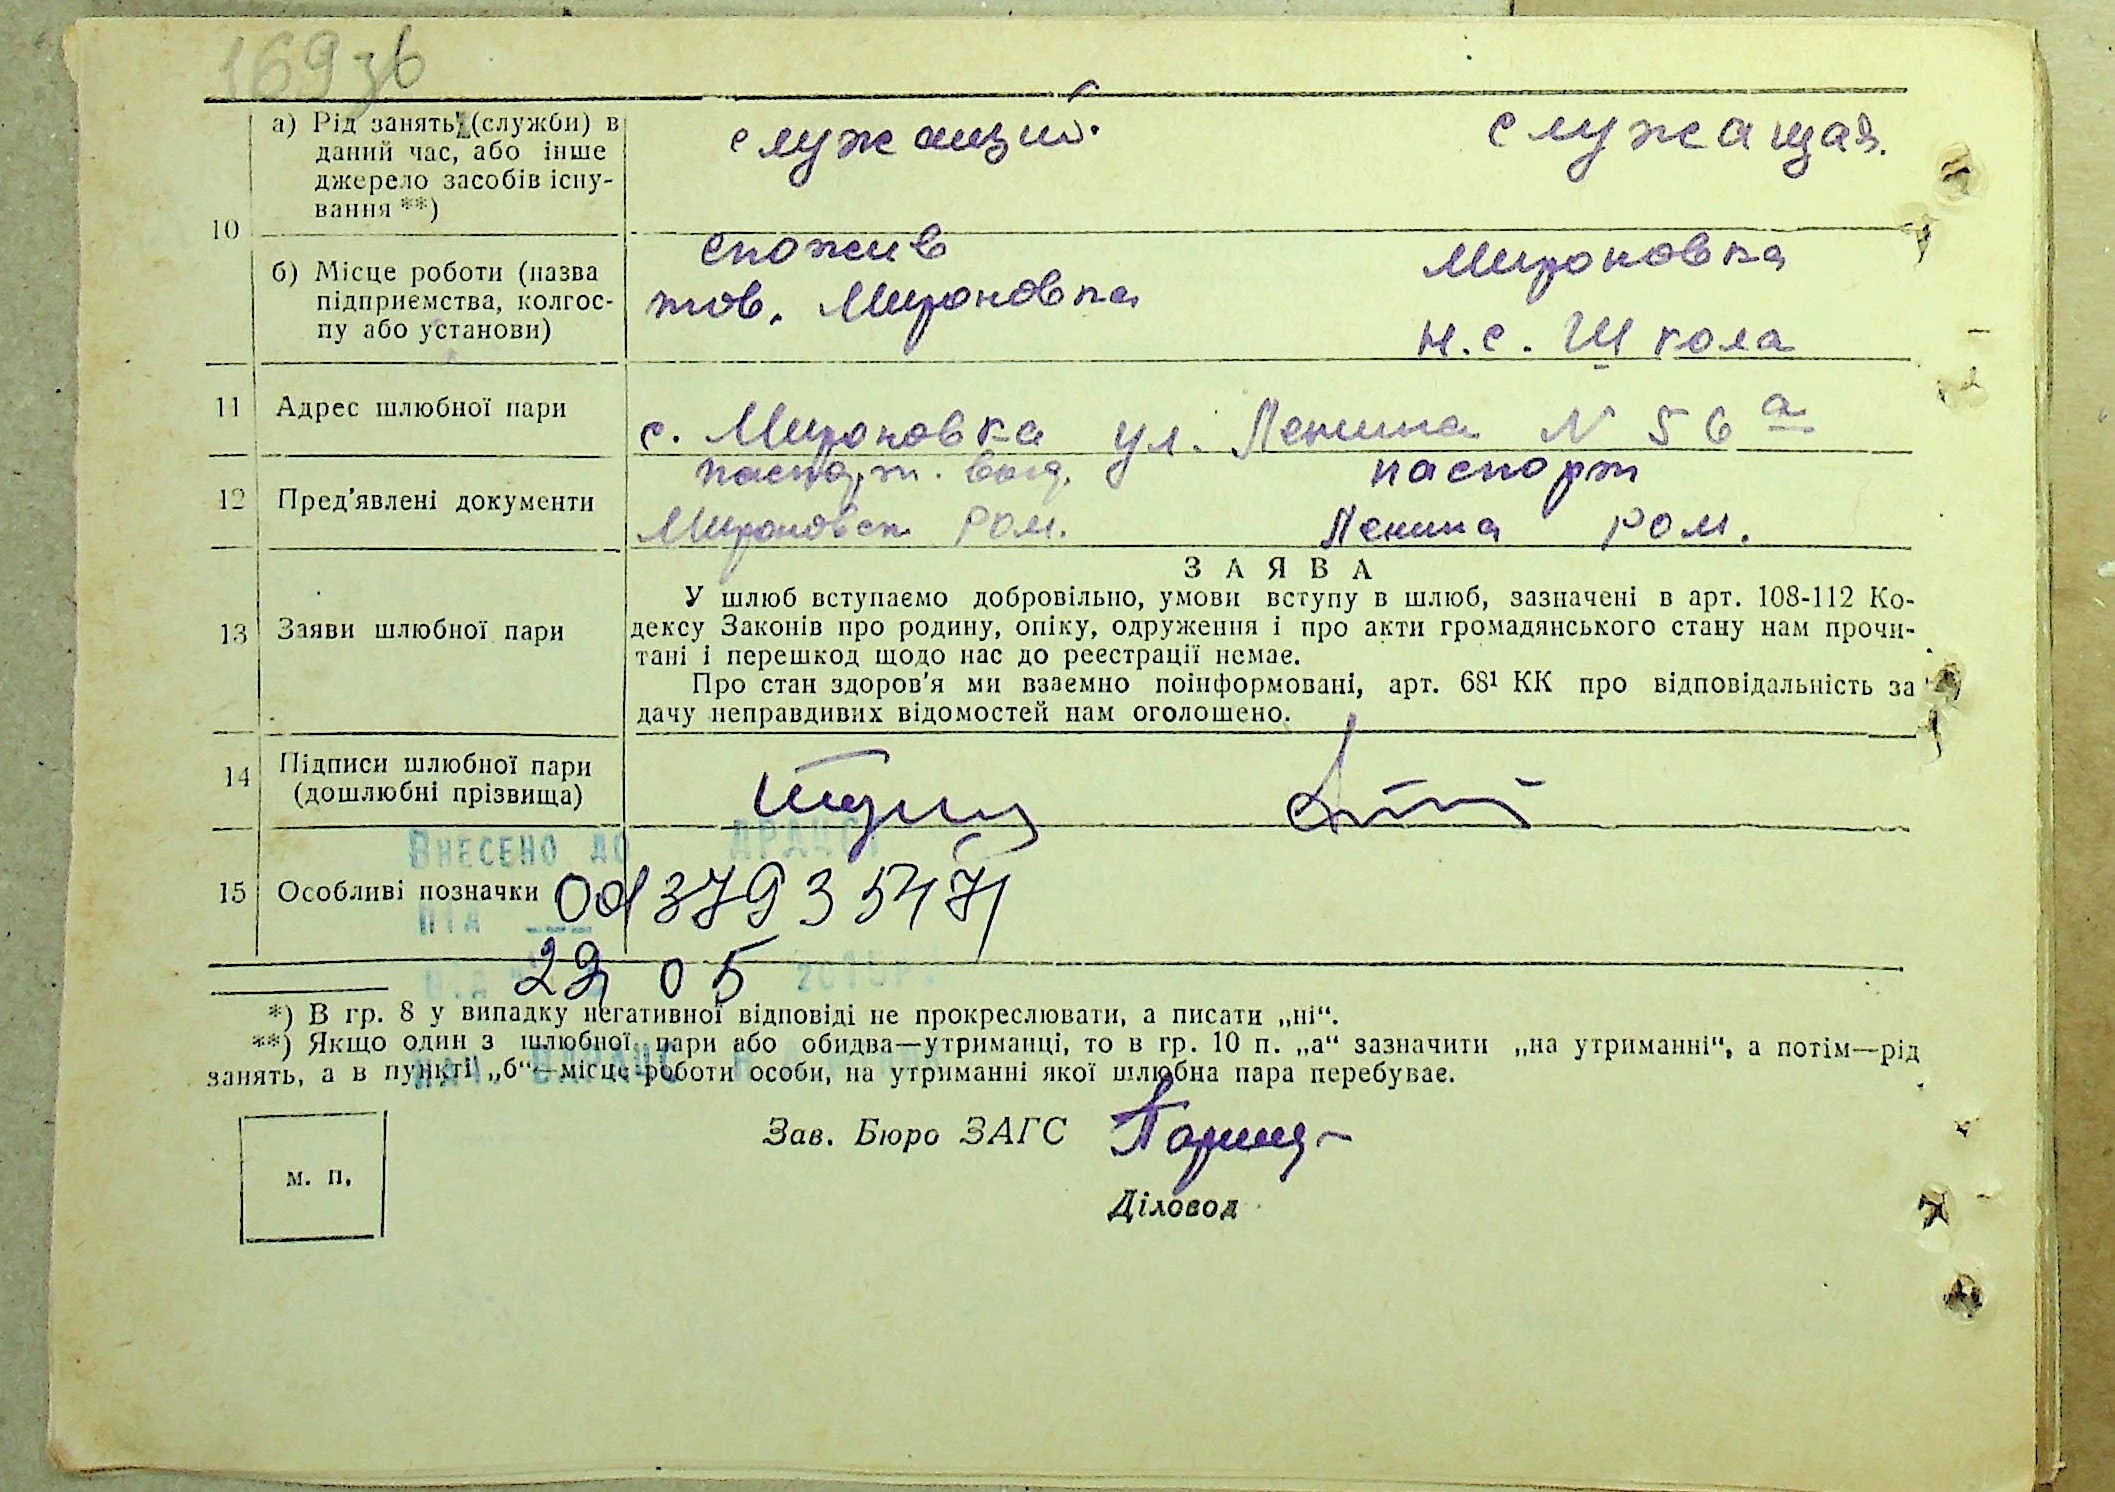 169зв
а) Рід занять (служби) в
даний час, або інше
джерело засобів існу-
вання **)
служащий.
служащая.
10
б) Місце роботи (назва
підприємства, колгос-
пу або установи)
спожив
тов. Мироновка
Мироновка
н.с. Школа
11 Адрес шлюбної пари
с. Мироновка ул. Ленина N 56 а
12 Пред'явлені документи
паспорт. выд.
Мироновск РОМ.
паспорт
Ленина РОМ.
13 Заяви шлюбної пари
ЗАЯВА
У шлюб вступаємо добровільно, умови вступу в шлюб, зазначені в арт. 108-112 Ко-
дексу Законів про родину, опіку, одруження і про акти громадянського стану нам прочи-
тані і перешкод щодо нас до реєстрації немає.
Про стан здоров'я ми взаємно поінформовані, арт. 68¹ КК про відповідальність за
дачу неправдивих відомостей нам оголошено.
14 Підписи шлюбної пари
(дошлюбні прізвища)
Внесено до ДРАЦСГ
15 Особливі позначки
00137935471
22 05
*) В гр. 8 у випадку негативної відповіді не прокреслювати, а писати „ні“.
**) Якщо один з шлюбної пари або обидва—утриманці, то в гр. 10 п. „а“ зазначити „на утриманні“, а потім—рід
занять, а в пункті „б“—місце роботи особи, на утриманні якої шлюбна пара перебуває.
Зав. Бюро ЗАГС
Діловод
м. п.